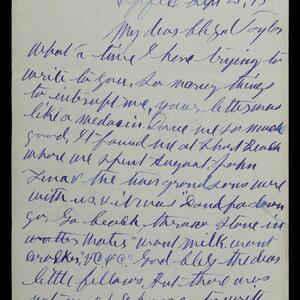 Sept 21, 15
My dear blessed Taylor
What a time I have trying to
write to you. So many things
to interrupt me, your letter was
like a medicin. Done me so much
good. It found me at Short Beach
where we spent August. John
& the two grandsons were
with us, & it was "Dandpa down
go. Go beach, throw stone in
water" "want milk, want
&c &c". God bless the dear
little fellows. But there was